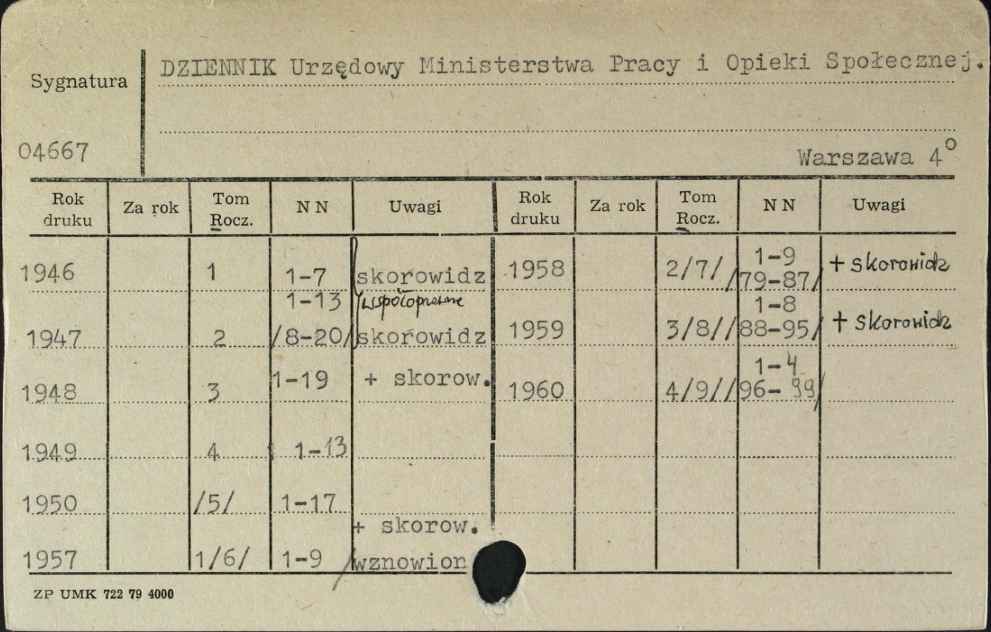 DZIENNIK Urzędowy Ministerstwa Pracy i Opieki Społecznej.
Sygnatura
04667
Warszawa 4°
Rok druku Za rok Tom Rocz. N N Uwagi Rok druku Za rok Tom Rocz. N N Uwagi
1946 1 1-7 skorowidz
1-13 /współoprawne
1947 2 /8-20/ skorowidz
1948 3 1-19 + skorow.
1949 4 1-13
1950 /5/ 1-17
+ skorow.
1957 1/6/ 1-9 /wznowion
1958 2/7/ 1-9 /79-87/ + skorowidz
1959 3/8/ 1-8 /88-95/ + skorowidz
1960 4/9/ 1-4 /96-99/
ZP UMK 722 79 4000